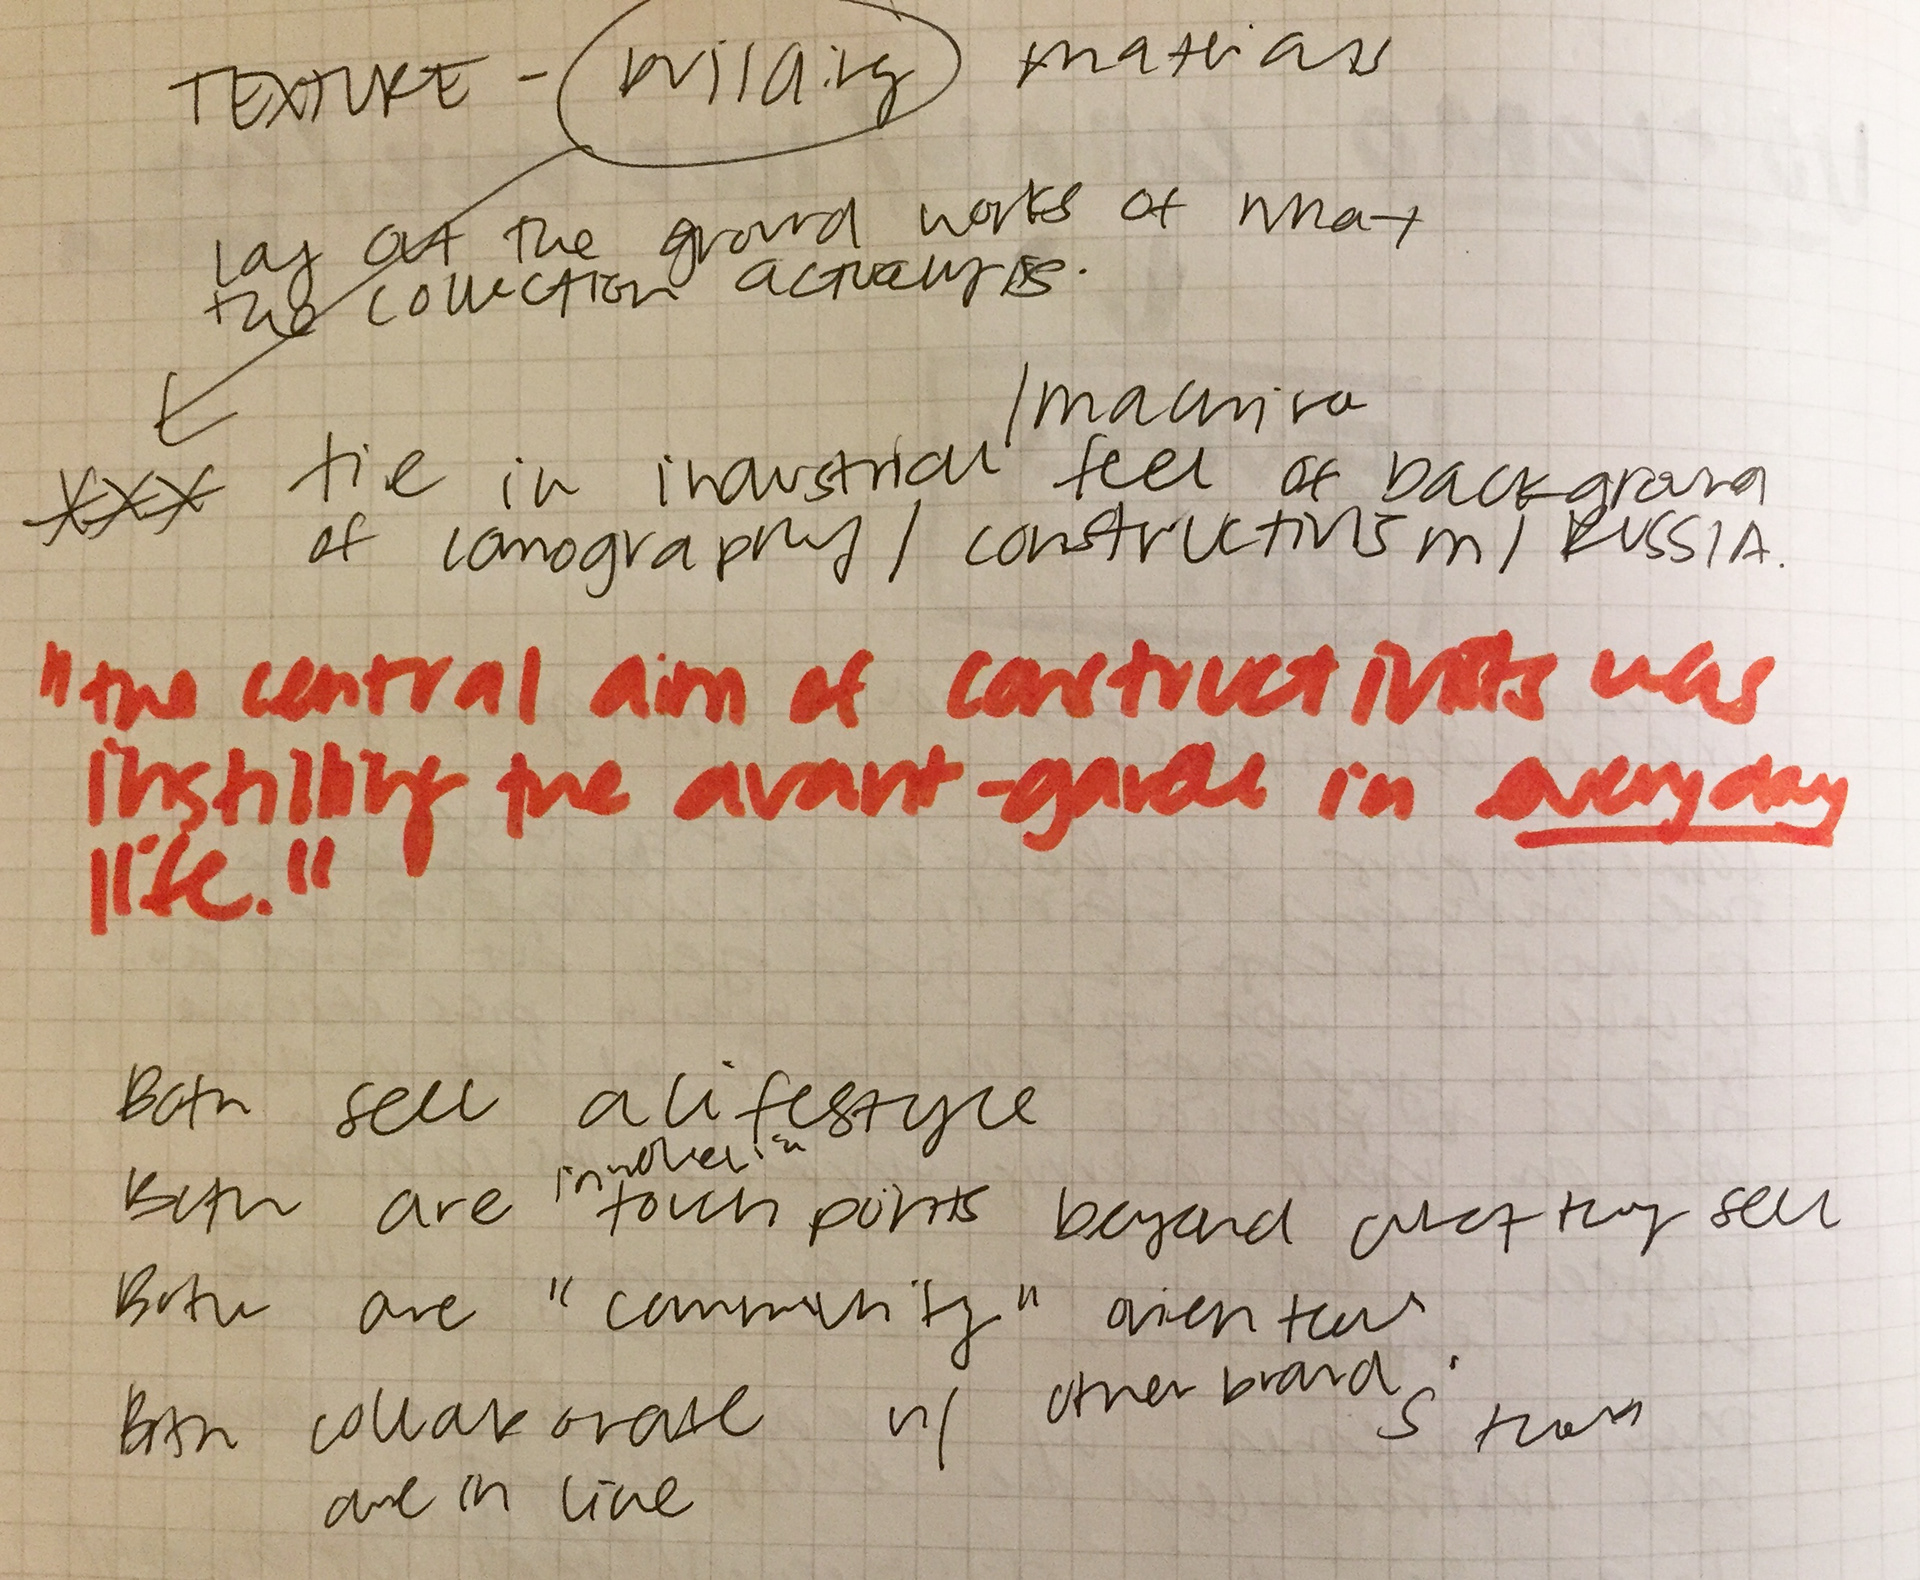 TEXTURE - building materials
lay out the ground works of what
the collection actually is.
/machine
xxx tie in industrial feel of background
of lomography / constructivism / RUSSIA.
"the central aim of constructivists was
instilling the avant-garde in everyday
life."
Both sell a lifestyle
involved in
Both are touch points beyond what they sell
Both are "community" oriented
Both collaborate w/ other brands that
are in line